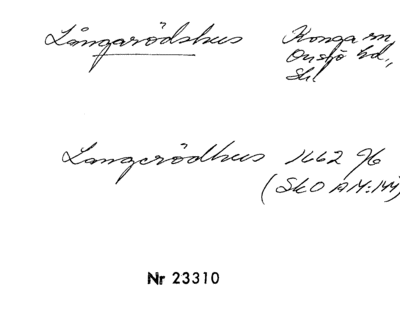 Långarödshus Konga sn,
Onsjö hd.,
Sk.
Langerödhus 1662 9/6
(SkO AM:144)
Nr 23310